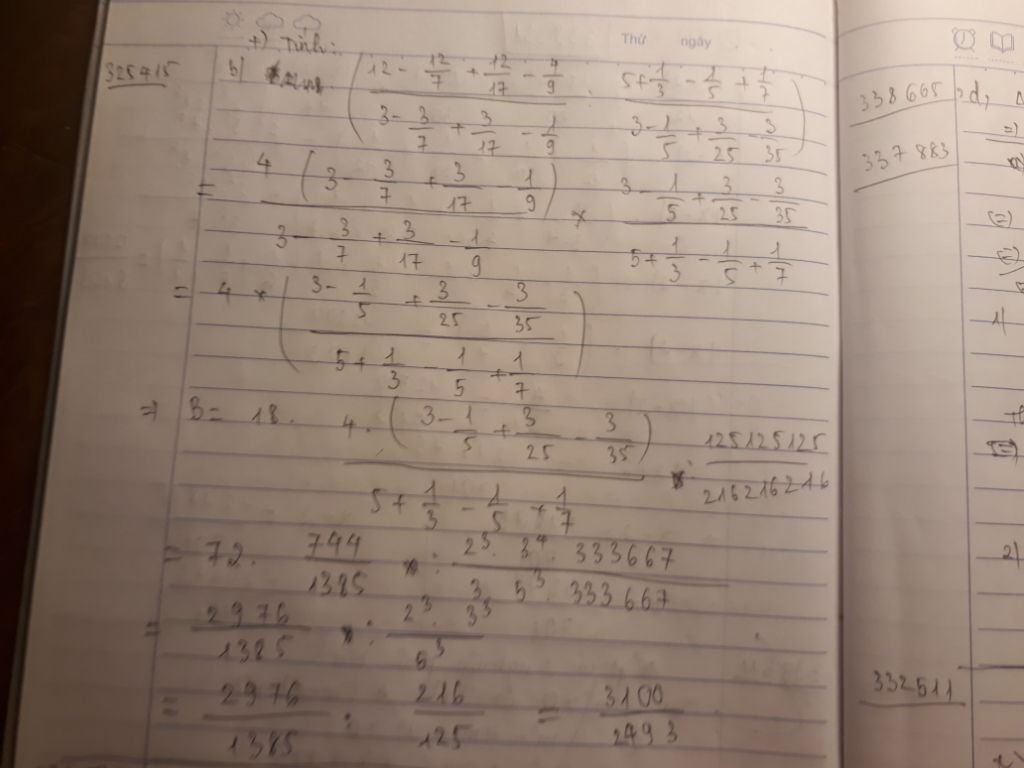 Thứ ngày
+) Tính:
325415
b) (12 - 12/7 + 12/17 - 4/9 / 3 - 3/7 + 3/17 - 1/9 : 5 + 1/3 - 1/5 + 1/7 / 3 - 1/5 + 3/25 - 3/35)
= 4 (3 - 3/7 + 3/17 - 1/9) / 3 - 3/7 + 3/17 - 1/9 × 3 - 1/5 + 3/25 - 3/35 / 5 + 1/3 - 1/5 + 1/7
= 4 × (3 - 1/5 + 3/25 - 3/35 / 5 + 1/3 - 1/5 + 1/7)
=> B = 18 . 4 . (3 - 1/5 + 3/25 - 3/35) / 5 + 1/3 - 1/5 + 1/7 : 125125125 / 216216216
= 72 . 744/1385 : 2³ . 3⁴ . 333667 / 3 . 5³ . 333667
= 2976/1385 : 2³ . 3³ / 5³
= 2976/1385 : 216/125 = 3100/2493
338665
337883
332511
d,
=)
1)
2)